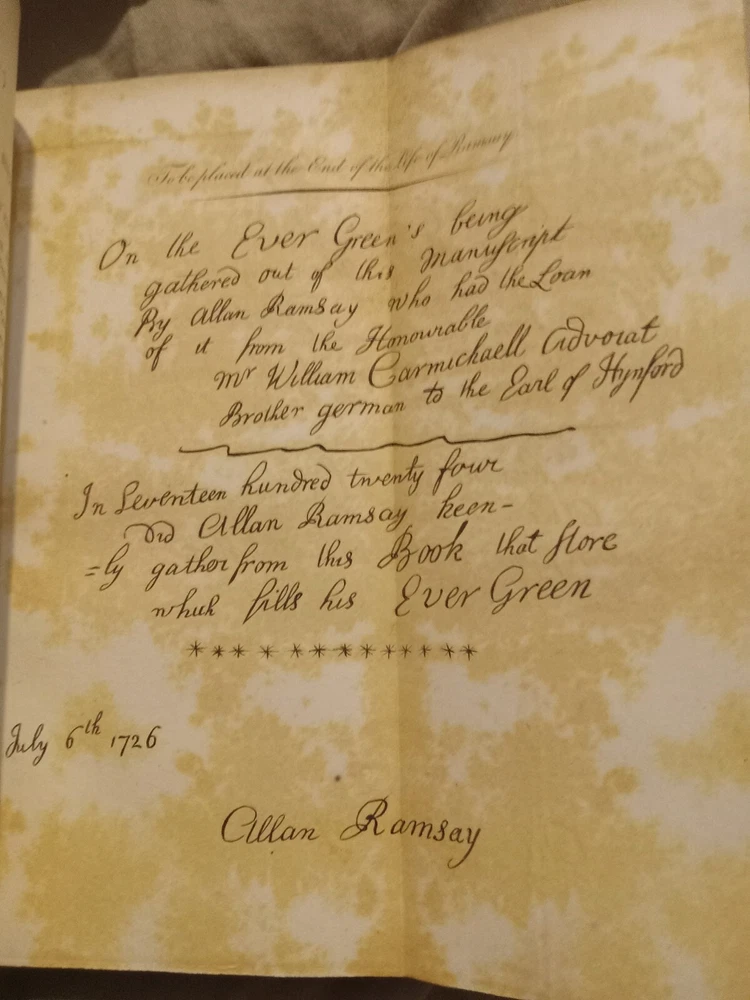 To be placed at the End of the Life of Ramsay
On the Ever Green's being
gathered out of this Manuscript
By Allan Ramsay who had the Loan
of it from the Honourable
Mr William Carmichaell Advocat
Brother german to the Earl of Hynford
In Seventeen hundred twenty four
Did Allan Ramsay keen-
=ly gather from this Book that store
which fills his Ever Green
* * * * * * * * * * * * *
July 6th 1726
Allan Ramsay